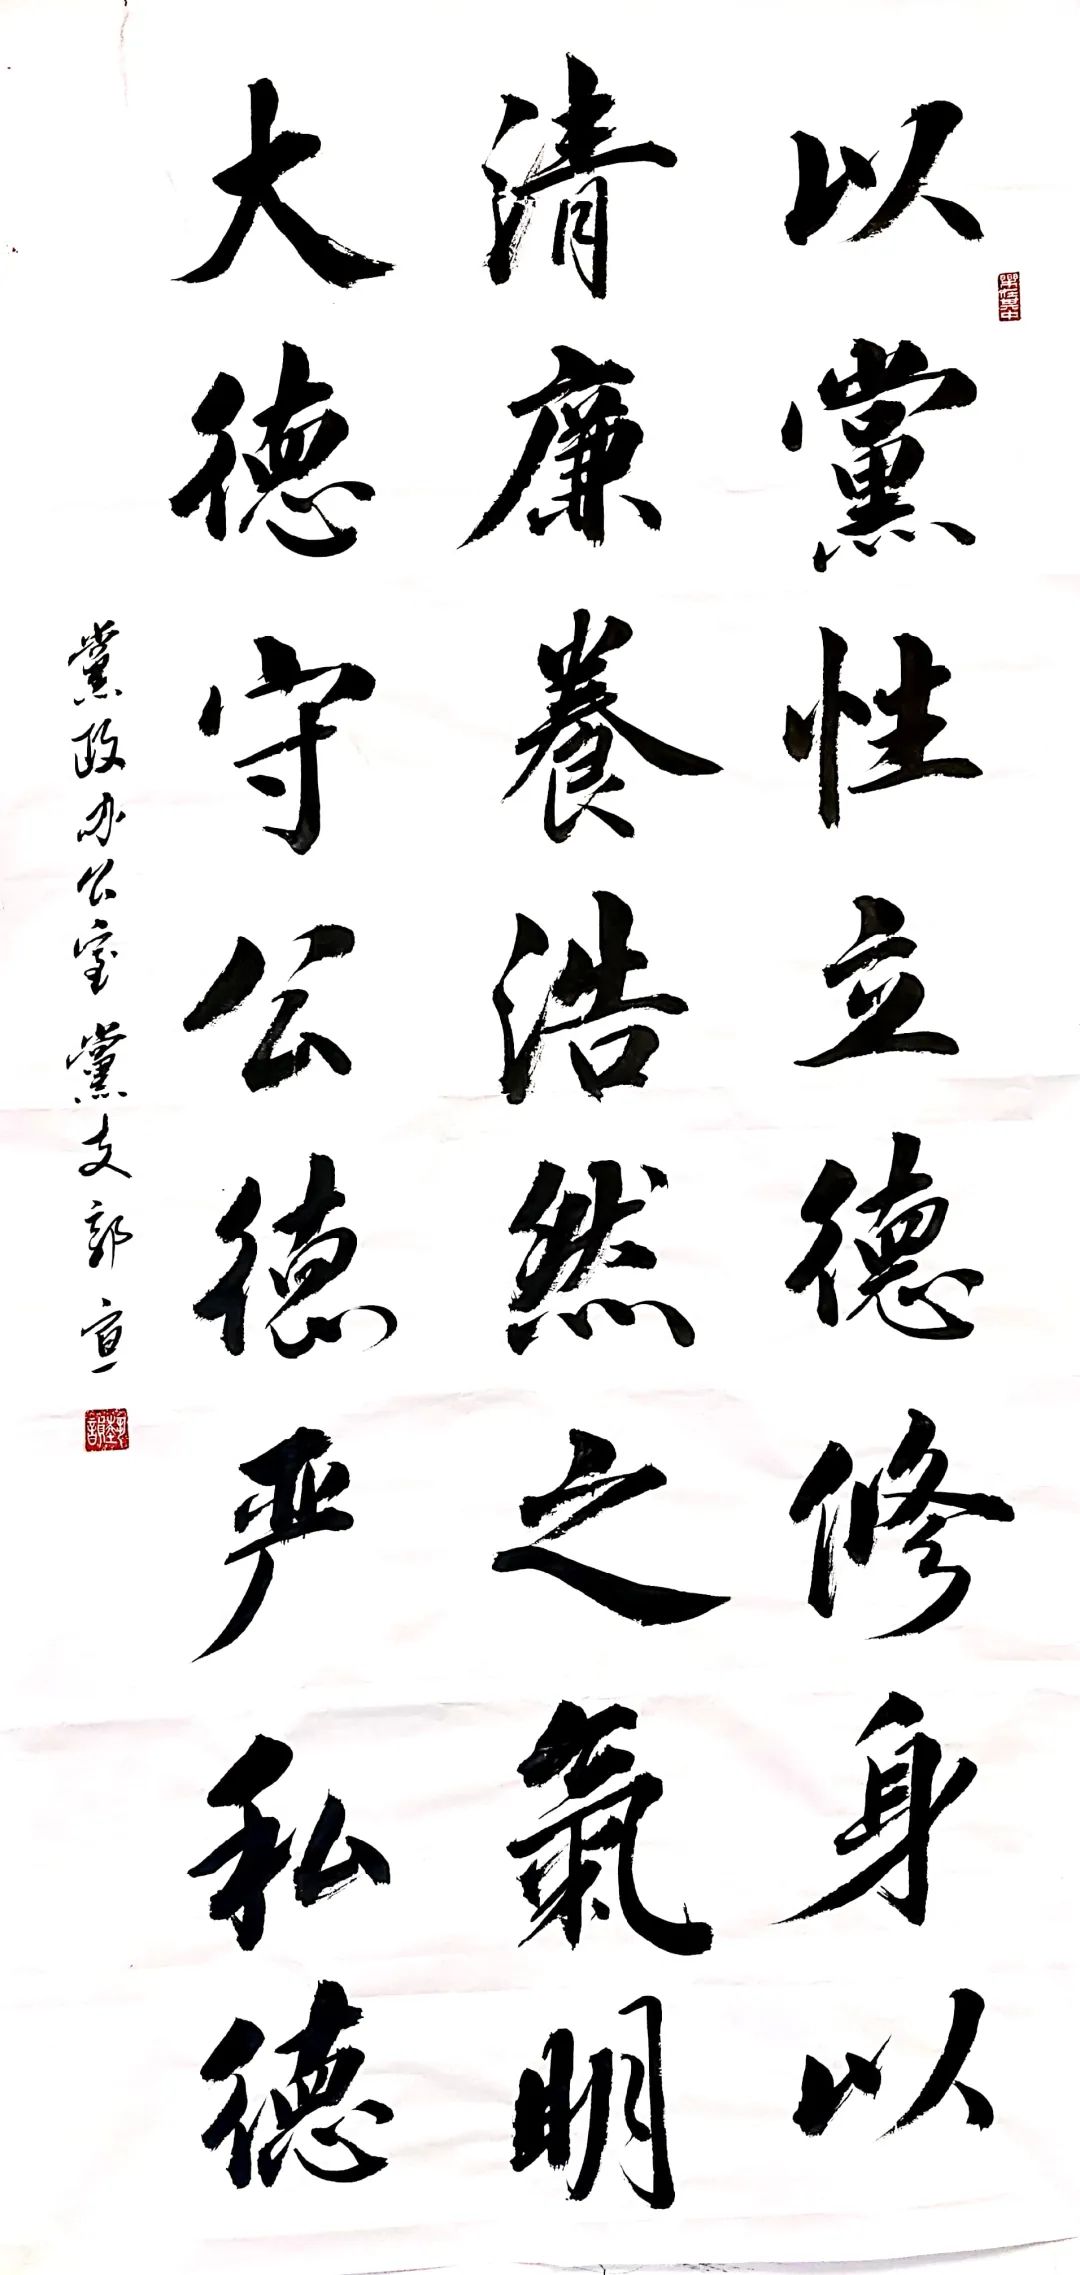 以黨性立德修身以
清廉養浩然之氣明
大德守公德严私德
黨政办公室黨支部宣